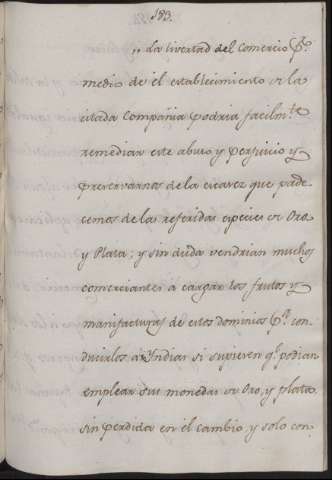 183.
,, La livertad del Comercio p.r
medio de el establecimiento de la
citada Compañia podria facilm.te
remediar este abuso y perjuicio y
preservarnos de la escasez que pade-
cemos de la referidas especies de Oro
y Plata; y sin duda vendrian muchos
comerciantes a cargar los frutos y
manufacturas de estos dominios p.a con
ducirlos a Yndias si supiesen q.e podian
emplear sus monedas de Oro, y plata
sin perdida en el cambio, y solo con